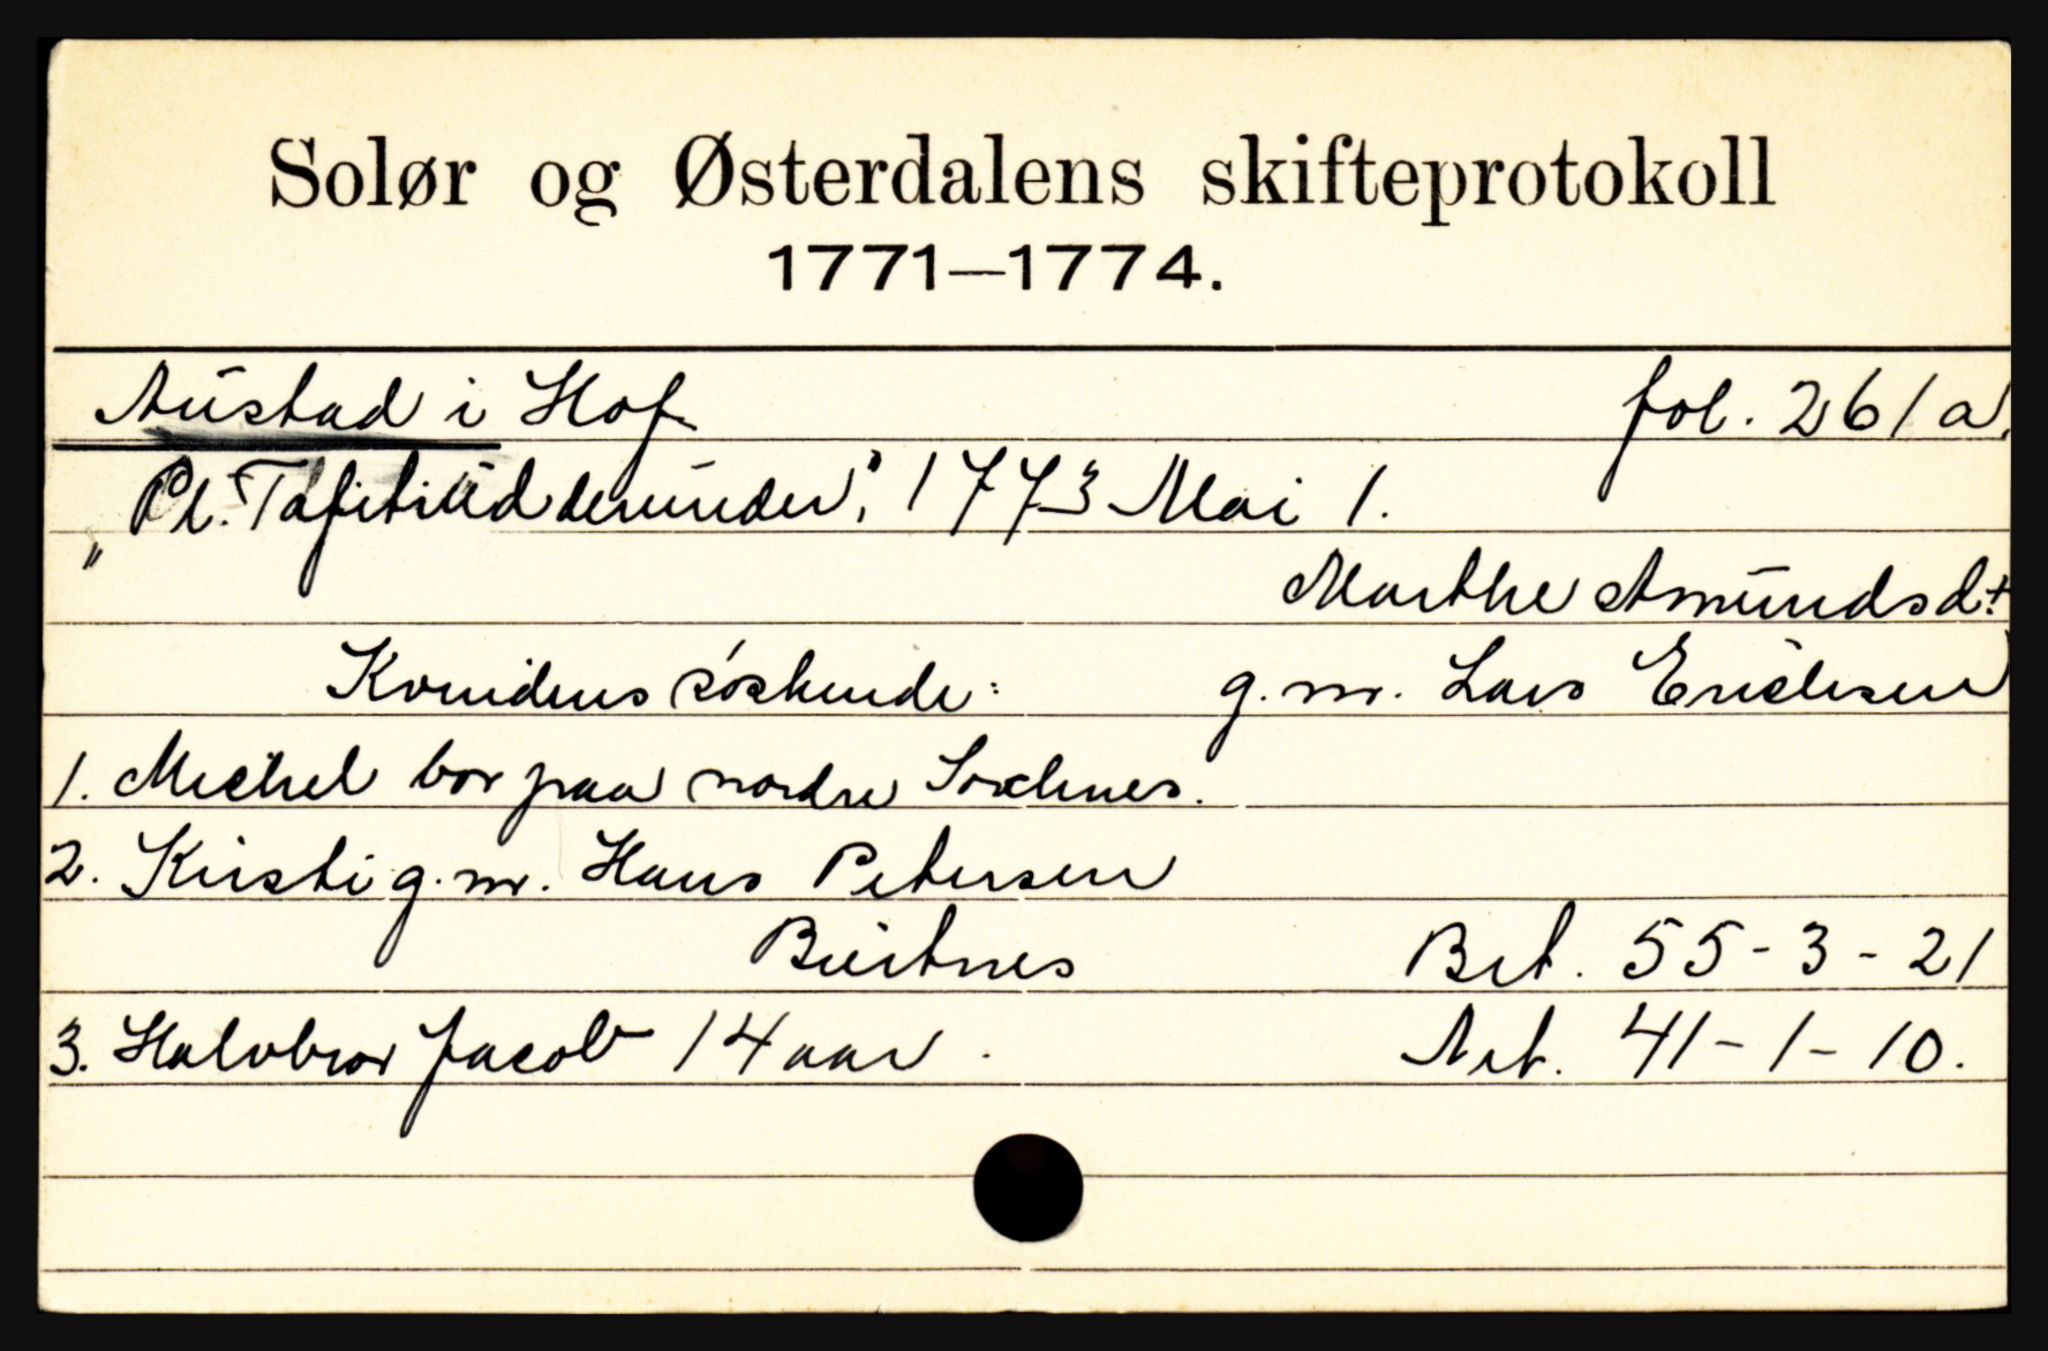 Solør og Østerdalens skifteprotokoll
1771—1774.
Aústad i Hof fol. 261a.
„Pl. Tafetrúd derúnder", 1773 Mai 1.
Marthe Amúndsdt
Kvindens søskende: g. m. Lars Erichsen
1. Michel bor paa nordre Sorknes.
2. Kirsti g. m. Hans Petersen
Búrtnes Brt. 55-3-21
3. Halvbror Jacob 14 aar. Net. 41-1-10.